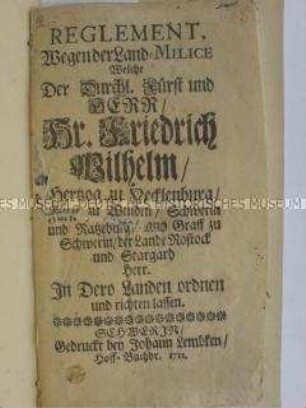 REGLEMENT,
Wegen der Land-MILICE
Welche
Der Durchl. Fürst und
HERR/
Hr. Friedrich
Wilhelm/
Hertzog zu Mecklenburg/
Fürst zu Wenden/ Schwerin
und Ratzeburg/ auch Graff zu
Schwerin/ der Lande Rostock
und Stargard
Herr.
In Dero Landen ordnen
und richten lassen.
SCHWERIN/
Gedruckt bey Johann Lembken/
Hoff-Buchdr. 1711.